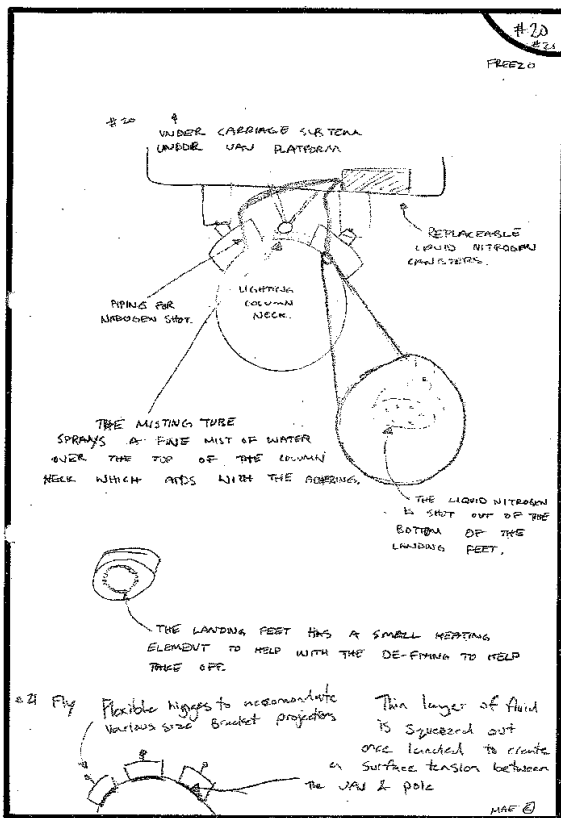 #20
#21
FREEZO
#20 &
UNDER CARRIAGE SUB TEMM
UNDDR UAN PLATFORM
REPLACEABLE
LIQUID NITROGEN
CANISTERS.
LIGHTING
COLUMN
NECK.
PIPING FOR
NITROGEN SHOT.
THE MISTING TUBE
SPRAYS A FINE MIST OF WATER
OVER THE TOP OF THE COLUMN
NECK WHICH AIDS WITH THE ADHERING.
THE LIQUID NITROGEN
IS SHOT OUT OF THE
BOTTOM OF THE
LANDING FEET.
THE LANDING FEET HAS A SMALL HEATING
ELEMENT TO HELP WITH THE DE-FIXING TO HELP
TAKE OFF.
#21 Fly
Flexible hinges to accommodate
various size Bracket projectors
Thin layer of fluid
is squeezed out
once landed to create
a surface tension between
the UAV & pole
MAE 6